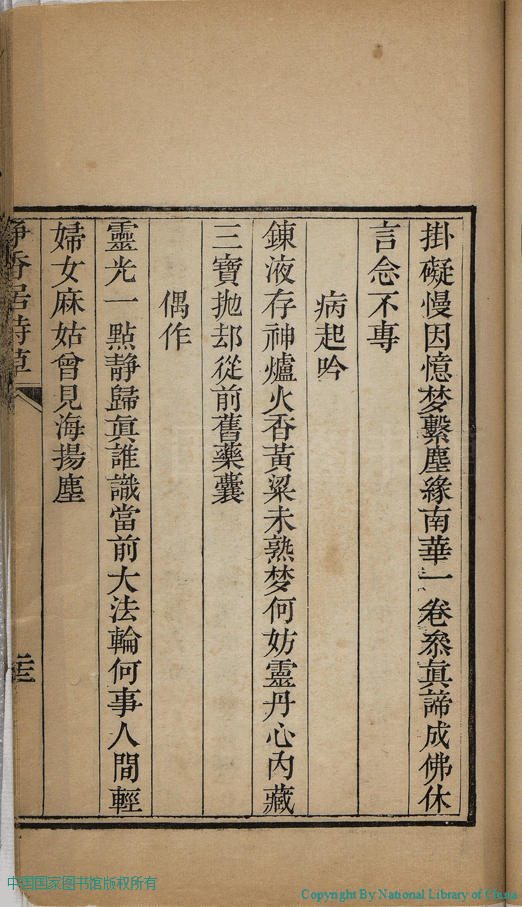 掛礙慢因憶梦繫塵緣南華一卷叅眞諦成佛休
言念不專
病起吟
鍊液存神爐火香黃粱未熟梦何妨靈丹心內藏
三寶抛却從前舊藥囊
偶作
靈光一點静歸眞誰識當前大法輪何事人間輕
婦女麻姑曾見海揚塵
静香居詩草
三
中国国家图书馆版权所有
Copyright By National Library of China